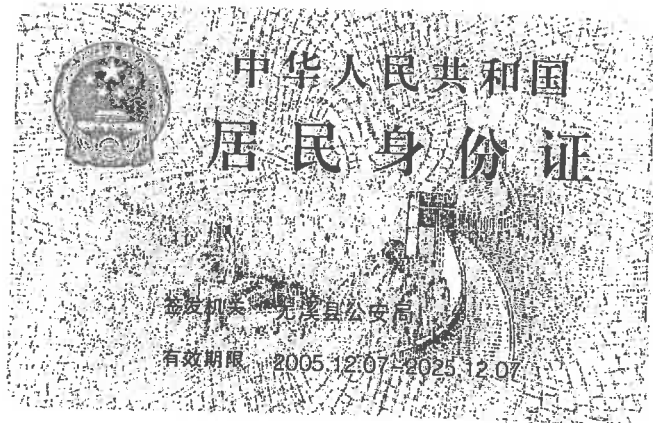 中华人民共和国
居民身份证
签发机关 芜湖县公安局
有效期限 2005.12.07-2025.12.07